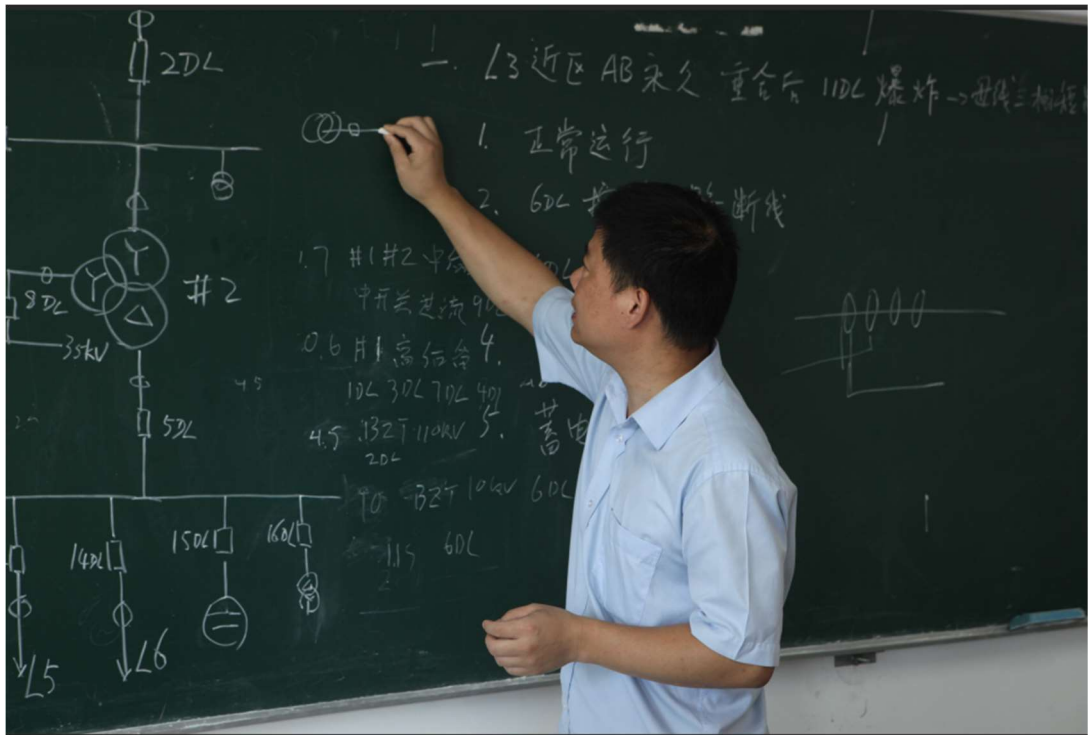 2DL
#2
8DL
35kV
5DL
14DL
15DL
16DL
L5
L6
一. L3近区AB永久 重合后 11DL爆炸→母线三相短
1. 正常运行
2. 6DL 断线
.7 #1 #2 中
中开关进流 9DL
0.6 #1高后备 4.
1DL 3DL 7DL 4DL
4.5 BZT 110kV 5. 蓄电
2DL
TO BZT 10kV 6DL
6DL